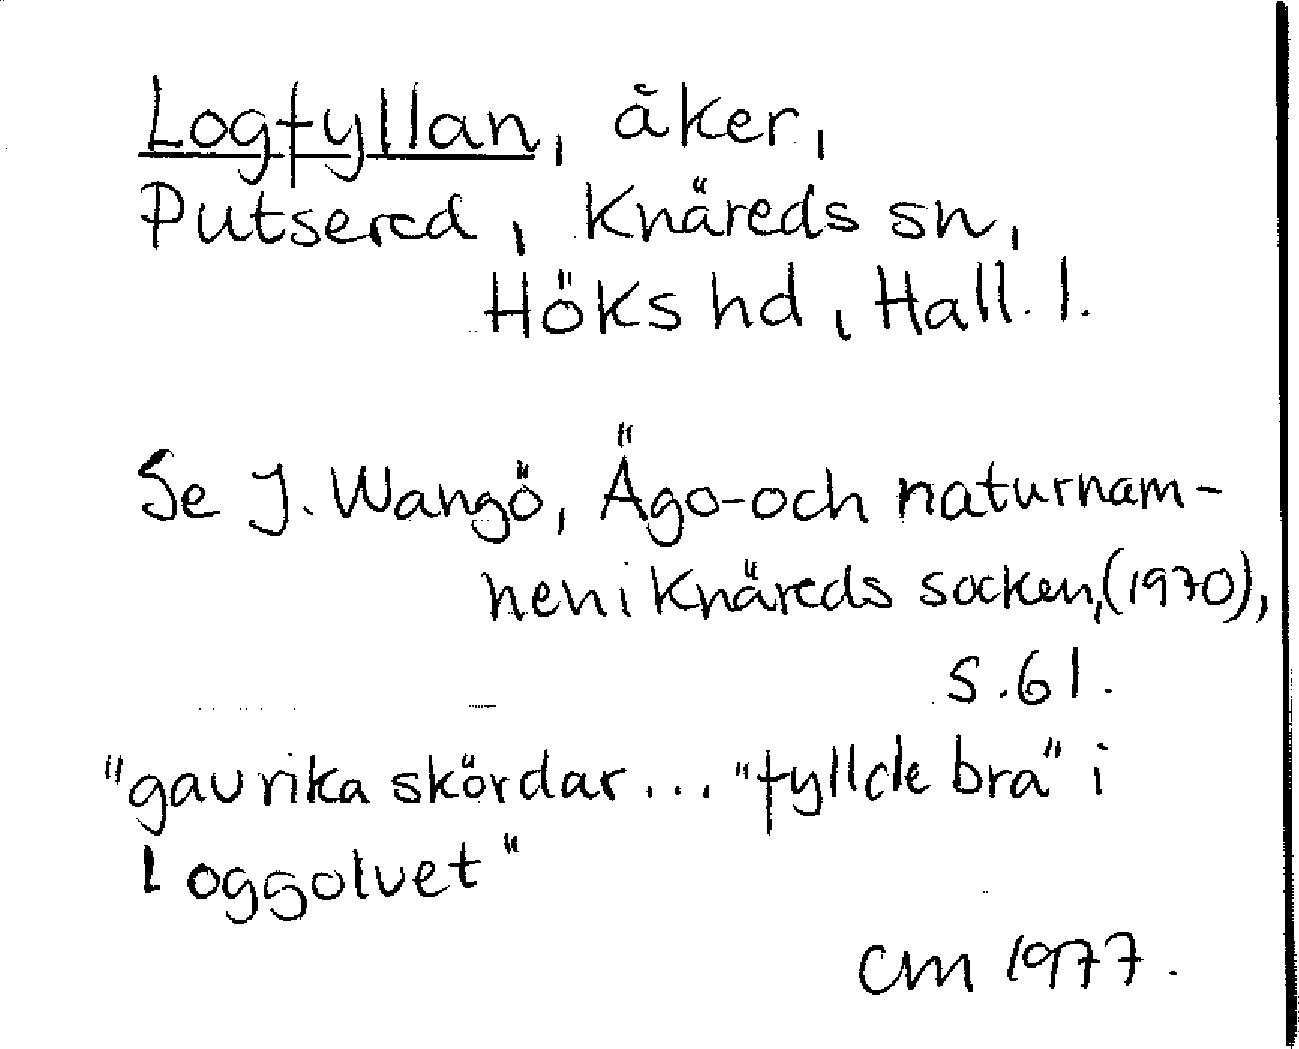 Logfyllan, åker,
Putsered, Knäreds sn,
Höks hd, Hall. l.
Se J. Wangö, Ägo- och naturnam-
nen i Knäreds socken, (1970),
s. 61.
"gav rika skördar... "fyllde bra" i
loggolvet"
CM 1977.